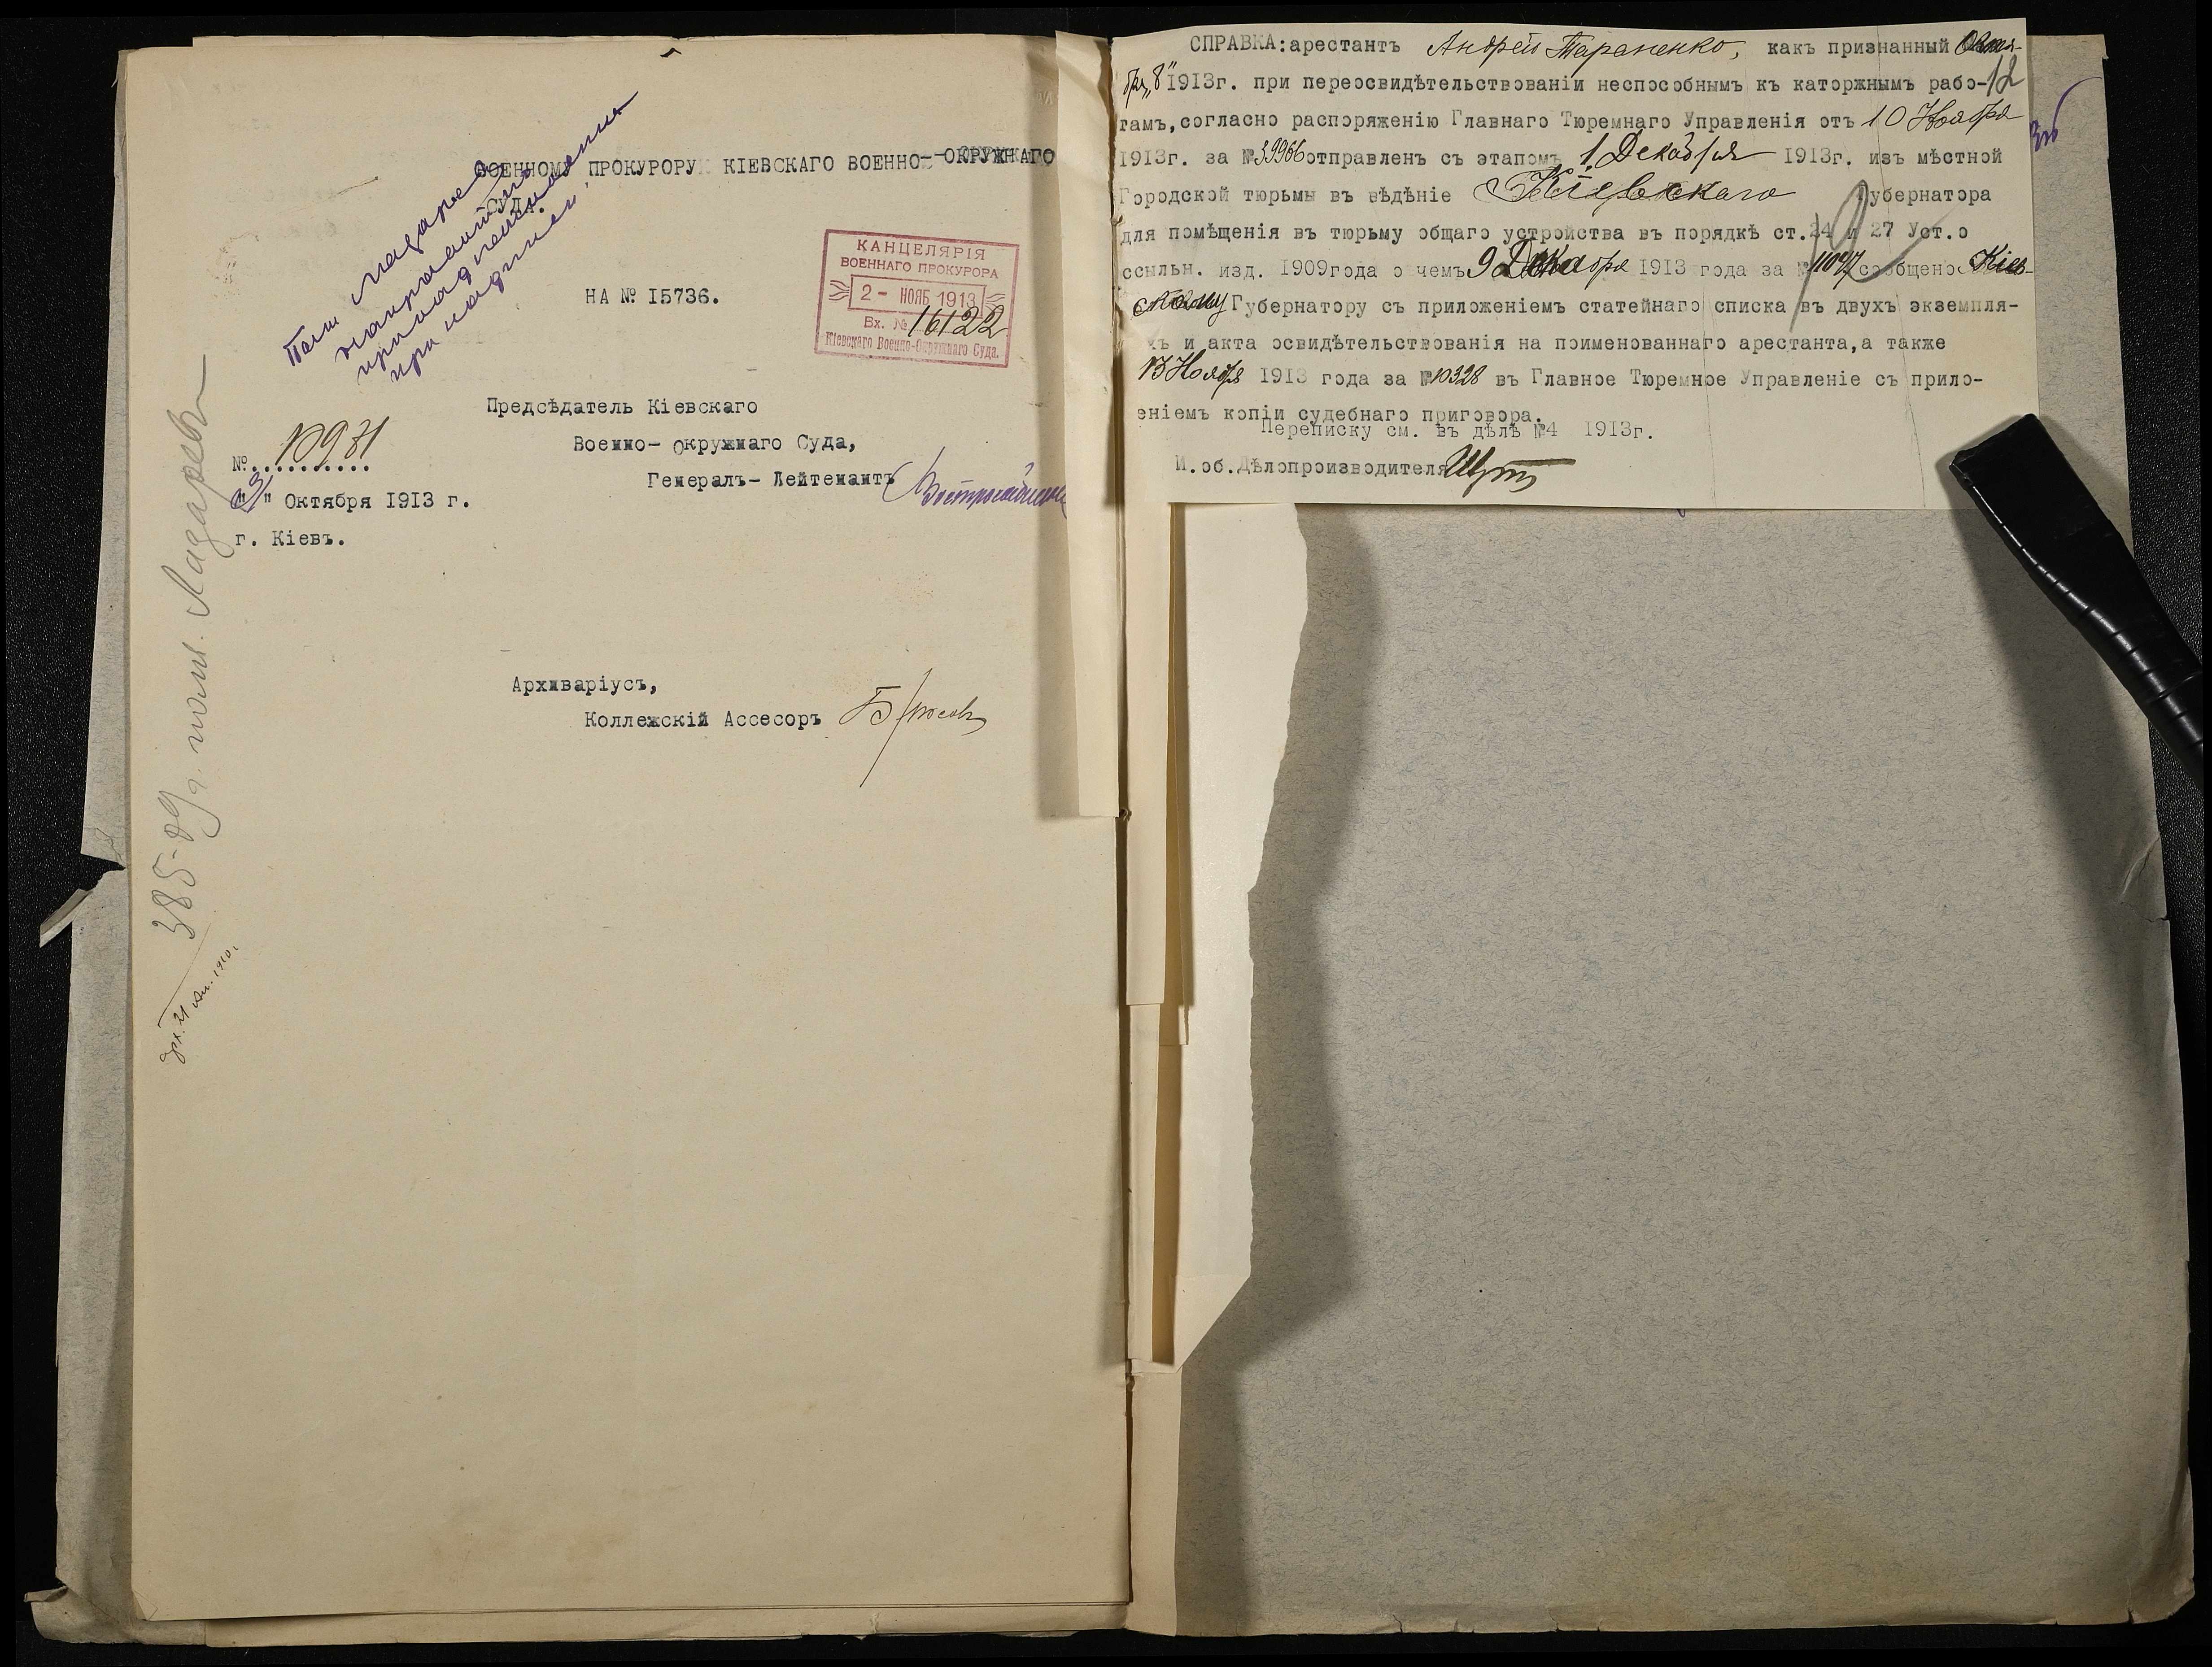 ВОЕННОМУ ПРОКУРОРУ КІЕВСКАГО ВОЕННО-ОКРУЖНАГО
СУДА.
Пом. Лазареву
направить по
принадлежности
при надписи.
КАНЦЕЛЯРІЯ
ВОЕННАГО ПРОКУРОРА
2 - НОЯБ 1913
Вх. № 16122
Кіевскаго Военно-Окружнаго Суда.
НА № 15736.
Предсѣдатель Кіевскаго
Военно- Окружнаго Суда,
Генералъ- Лейтенантъ
№. 10931
"31" Октября 1913 г.
г. Кіевъ.
Архиваріусъ,
Коллежскій Ассесоръ
385-09 д. пом. Лазарева
арх. 21 1910 г.
СПРАВКА:арестантъ Андрей Тараненко, какъ признанный Октя-
бря „8" 1913г. при переосвидѣтельствованіи неспособнымъ къ каторжнымъ рабо-
12
тамъ,согласно распоряженію Главнаго Тюремнаго Управленія отъ 10 Ноября
1913г. за №39966 отправленъ съ этапомъ 1 Декабря 1913г. изъ мѣстной
Городской тюрьмы въ вѣдѣніе Кіевскаго Губернатора
для помѣщенія въ тюрьму общаго устройства въ порядкѣ ст.24 и 27 Уст.о
ссыльн. изд. 1909года о чемъ 9 Декабря 1913 года за №11097 сообщено Кіев-
скому Губернатору съ приложеніемъ статейнаго списка въ двухъ экземпля-
хъ и акта освидѣтельствованія на поименованнаго арестанта,а также
13 Ноября 1913 года за №10328 въ Главное Тюремное Управленіе съ прило-
еніемъ копіи судебнаго приговора.
Переписку см. въ дѣлѣ №4 1913г.
И.об.Дѣлопроизводителя